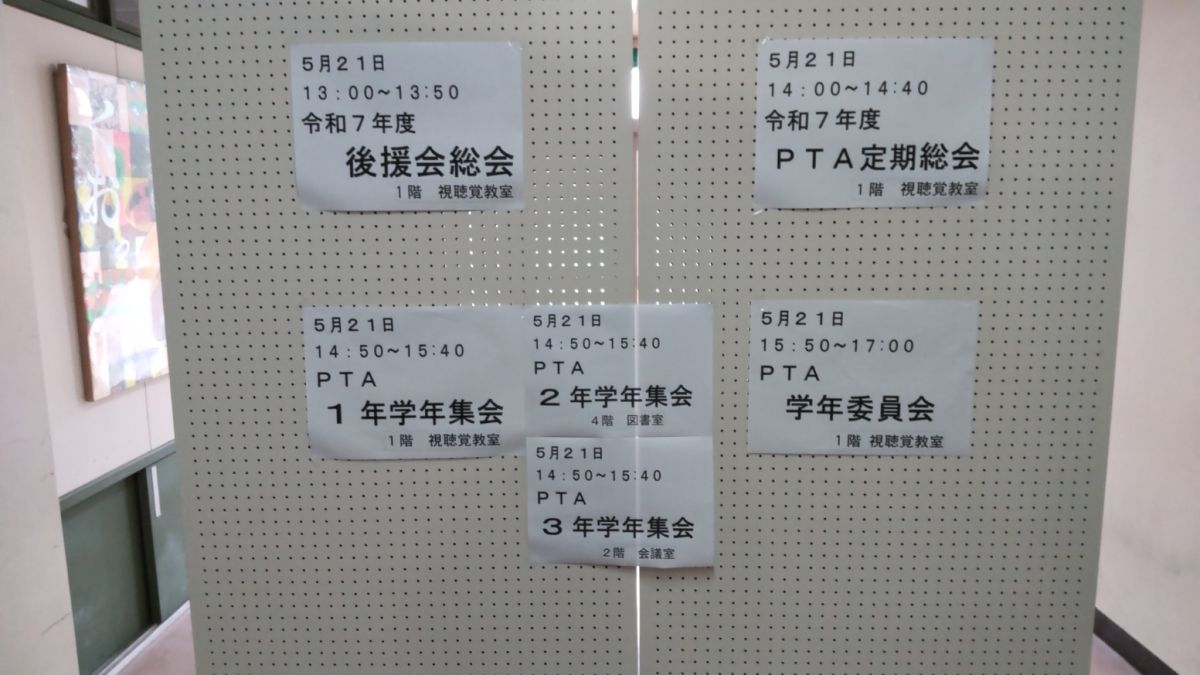 5月21日
13:00~13:50
令和7年度
後援会総会
1階 視聴覚教室
5月21日
14:00~14:40
令和7年度
PTA定期総会
1階 視聴覚教室
5月21日
14:50~15:40
PTA
1年学年集会
1階 視聴覚教室
5月21日
14:50~15:40
PTA
2年学年集会
4階 図書室
5月21日
14:50~15:40
PTA
3年学年集会
2階 会議室
5月21日
15:50~17:00
PTA
学年委員会
1階 視聴覚教室